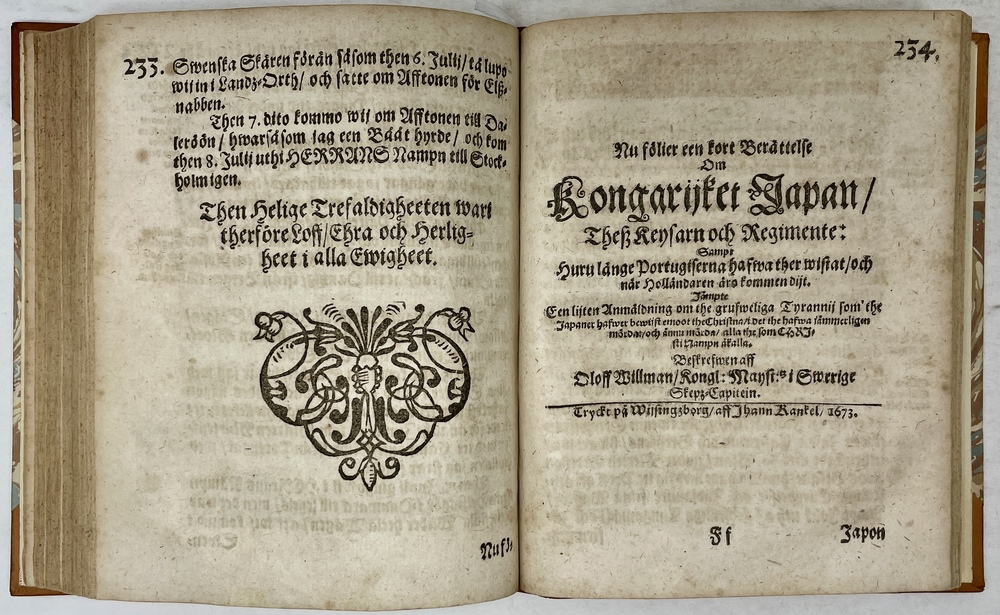 233.
Swenska Skären förån såsom then 6. Julij/ tå lupo
wij in i Landz-Orth/ och satte om Afftonen för Elß-
nabben.
Then 7. dito kommo wij om Afftonen till Da-
leröön/ hwarsåsom jag een Bååt hyrde/ och kom
then 8. Julij uthi HERRANS Nampn till Stock-
holm igen.
Then Helige Trefaldigheeten wari
therföre Loff/ Ehra och Herlig-
heet i alla Ewigheet.
234.
Nu fölier een kort Berättelse
Om
Kongarijket Japan/
Theß Keysarn och Regimente:
Sampt
Huru länge Portugiserna hafwa ther wistat/ och
när Holländaren äro kommen dijt.
Jämpte
Een lijten Anmäldning om the grufweliga Tyrannij som the
Japaner hafwer bewijst emoot the Christna/ i det the hafwa jämmerligen
mördat/ och ännu mörda/ alla the som CHRI-
sti Nampn åkalla.
Beskrefwen aff
Oloff Willman/ Kongl: Mayst:s i Swerige
Skepz-Capitein.
Tryckt på Wijsingzborg/ aff Jhann Kankel/ 1673.
Ff
Japon